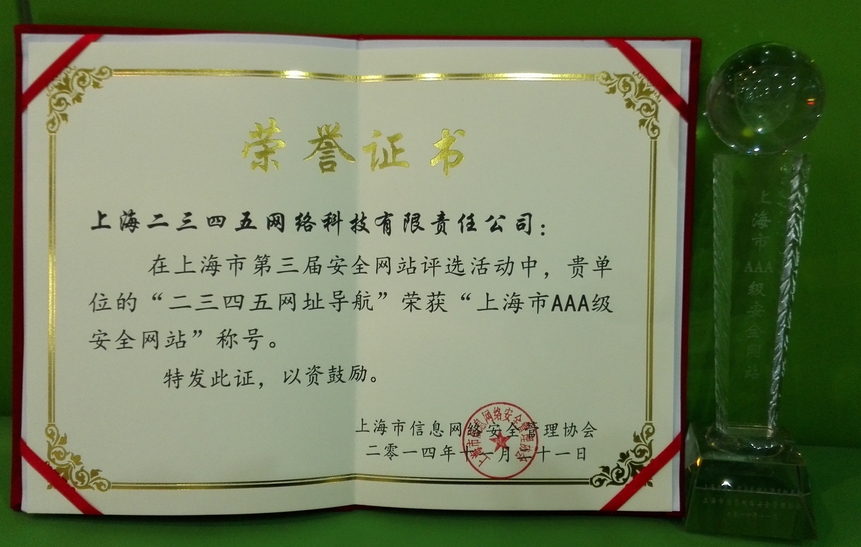 荣誉证书
上海二三四五网络科技有限责任公司：
在上海市第三届安全网站评选活动中，贵单
位的“二三四五网址导航”荣获“上海市AAA级
安全网站”称号。
特发此证，以资鼓励。
上海市信息网络安全管理协会
二零一四年十一月二十一日
上海市AAA级安全网站